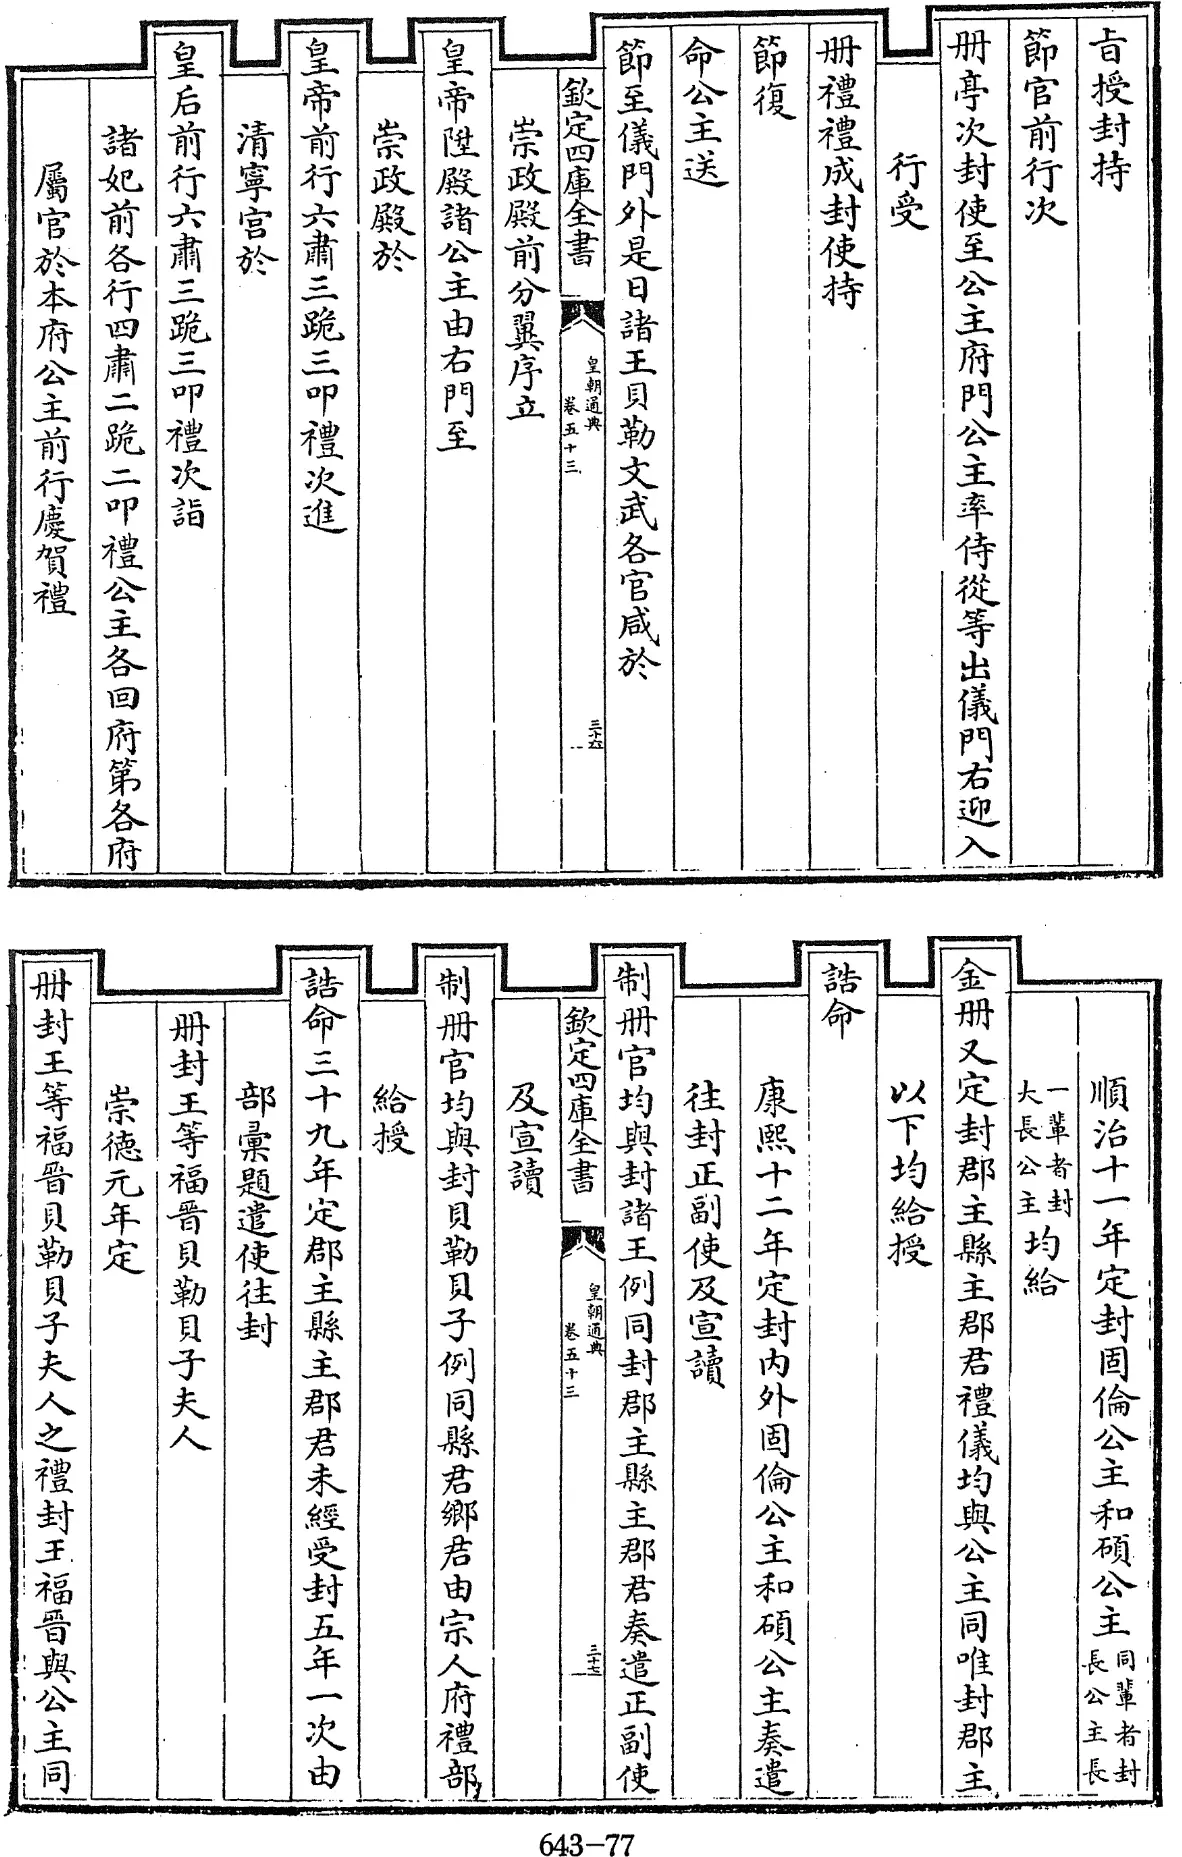 旨授封持
節官前行次
冊亭次封使至公主府門公主率侍從等出儀門右迎入
行受
冊禮禮成封使持
節復
命公主送
節至儀門外是日諸王貝勒文武各官咸於
欽定四庫全書 皇朝通典 卷五十三 三十六
崇政殿前分翼序立
皇帝陞殿諸公主由右門至
崇政殿於
皇帝前行六肅三跪三叩禮次進
清寧宮於
皇后前行六肅三跪三叩禮次詣
諸妃前各行四肅二跪二叩禮公主各回府第各府
屬官於本府公主前行慶賀禮
順治十一年定封固倫公主和碩公主同輩者封長公主長
一輩者封大長公主均給
金冊又定封郡主縣主郡君禮儀均與公主同唯封郡主
以下均給授
誥命
康熙十二年定封內外固倫公主和碩公主奏遣
往封正副使及宣讀
制冊官均與封諸王例同封郡主縣主郡君奏遣正副使
欽定四庫全書 皇朝通典 卷五十三 三十七
及宣讀
制冊官均與封貝勒貝子例同縣君鄉君由宗人府禮部
給授
誥命三十九年定郡主縣主郡君未經受封五年一次由
部彙題遣使往封
冊封王等福晉貝勒貝子夫人
崇德元年定
冊封王等福晉貝勒貝子夫人之禮封王福晉與公主同
643-77